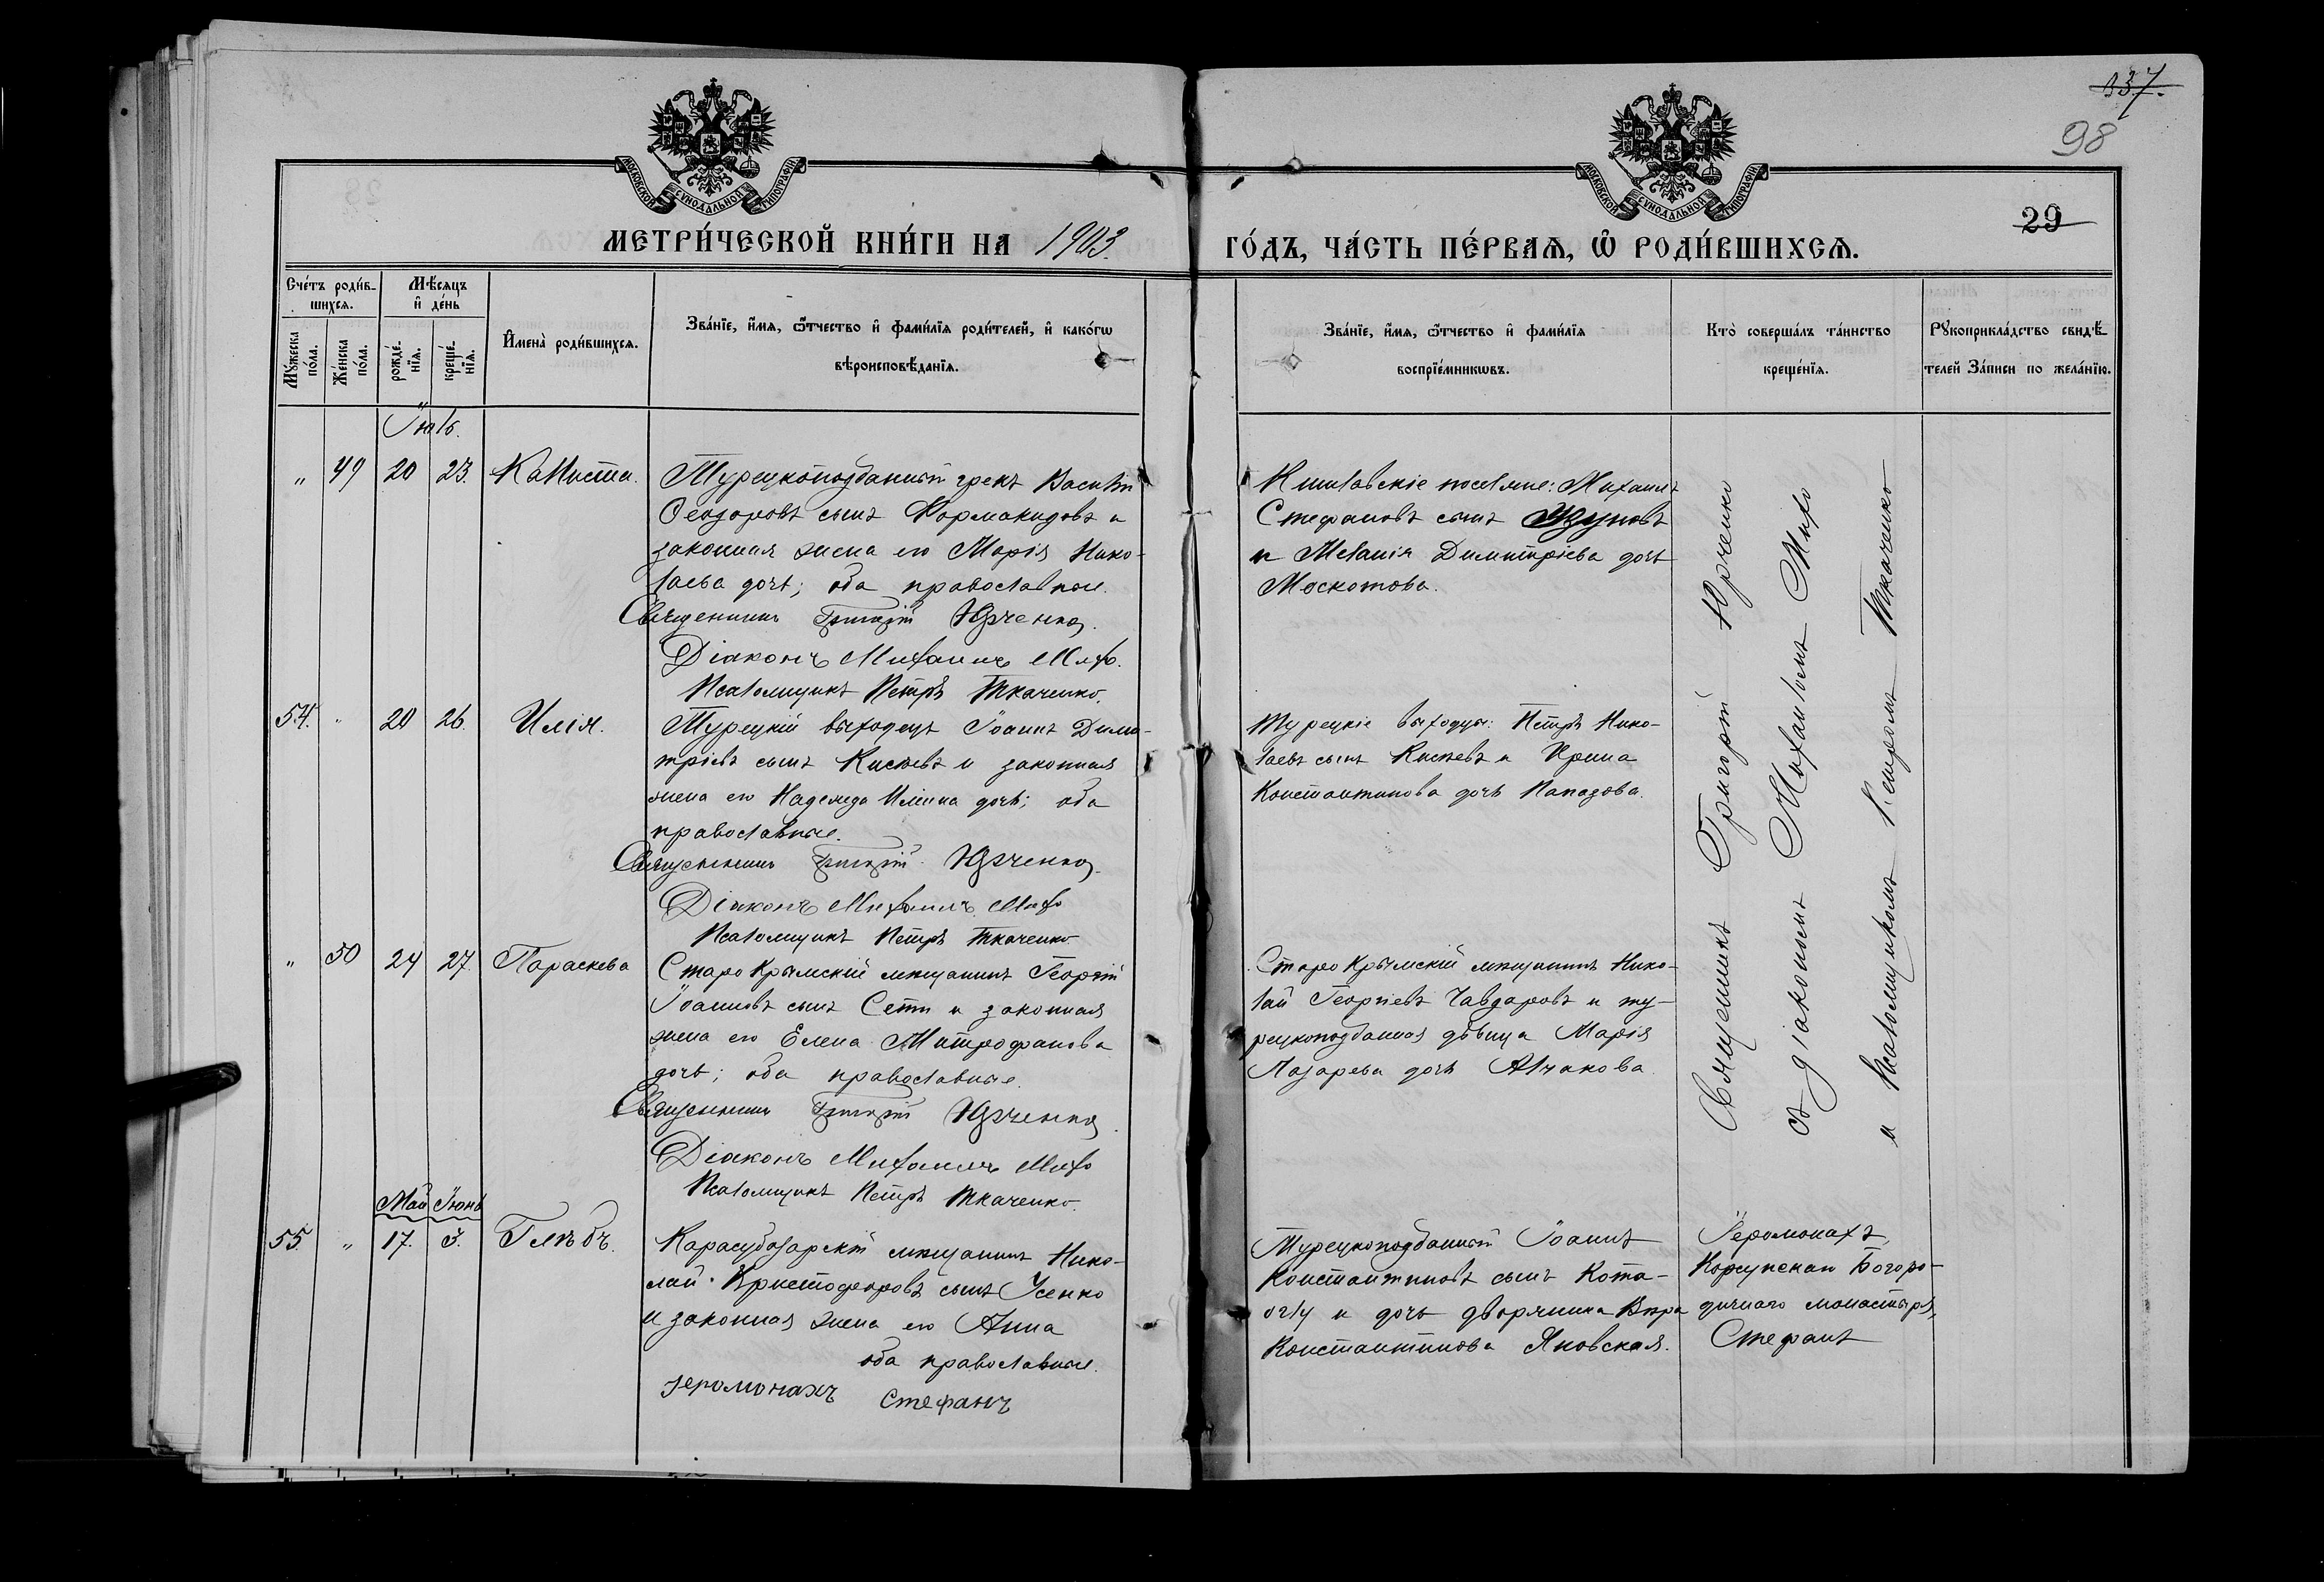 337.
98
29
МОСКОВСКОЙ СУНОДАЛЬНОЙ ТИПОГРАФІИ
МОСКОВСКОЙ СУНОДАЛЬНОЙ ТИПОГРАФІИ
МЕТРИ́ЧЕСКОЙ КНИ́ГИ НА 1903. ГО́ДЪ, ЧА́СТЬ ПЕ́РВАѦ, Ѽ РОДИ́ВШИХСѦ.
Сче́тъ роди́в-
шихсѧ.
Мѣ́сѧцъ
и҆ де́нь
Мꙋ́жеска
по́ла.
Же́нска
по́ла.
рожде́-
нїѧ.
креще́-
нїѧ.
И҆мена̀ роди́вшихсѧ.
Зва́нїе, и҆́мѧ, ѻ҆́тчество и҆ фами́лїѧ роди́телей, и҆ како́гѡ
вѣроисповѣ́данїѧ.
Зва́нїе, и҆́мѧ, ѻ҆́тчество и҆ фами́лїѧ
воспрїе́мникѡвъ.
Кто̀ соверша́лъ та́инство
креще́нїѧ.
Рꙋкоприкла́дство свидѣ́-
телей За́писи по жела́нїю.
Іюль.
„ 49 20 23. Каллиста.
Турецкоподданный грекъ Василій
Ѳеодоровъ сынъ Кормакидовъ и
законная жена его Марія Нико-
лаева дочь; оба православные.
Священникъ Григорій Юрченко.
Діаконъ Михаилъ Михо.
Псаломщикъ Петръ Ткаченко.
Кишлавскіе поселяне: Михаилъ
Стефановъ сынъ Узуновъ
и Меланія Димитріева дочь
Москотова.
Священникъ Григорій Юрченко
съ діакономъ Михаиломъ Михо
и псаломщикомъ Петромъ Ткаченко
54. „ 20 26. Илія.
Турецкій выходецъ Іоаннъ Дими-
тріевъ сынъ Кистевъ и законная
жена его Надежда Ильина дочь; оба
православные.
Священникъ Григорій Юрченко.
Діаконъ Михаилъ Михо
Псаломщикъ Петръ Ткаченко
Турецкіе выходцы: Петръ Нико-
лаевъ сынъ Кистевъ и Ирина
Константинова дочь Папазова.
„ 50 24 27. Параскева
Старо Крымскій мѣщанинъ Георгій
Іоанновъ сынъ Сетти и законная
жена его Елена Митрофанова
дочь; оба православные.
Священникъ Григорій Юрченко.
Діаконъ Михаилъ Михо
Псаломщикъ Петръ Ткаченко.
Старо Крымскій мѣщанинъ Нико-
лай Георгіевъ Чавдаровъ и ту-
рецкоподданная дѣвица Марія
Лазарева дочь Алчакова.
Май Іюнь
55. „ 17. 3. Глѣбъ.
Карасубазарскій мѣщанинъ Нико-
лай Христофоровъ сынъ Усенко
и законная жена его Анна
оба православные.
Іеромонахъ Стефанъ
Турецкоподданный Іоаннъ
Константиновъ сынъ Кота-
оглу и дочь дворянина Вѣра
Константинова Яновская.
Іеромонахъ
Корсунскаго Богоро-
дичнаго монастыря,
Стефанъ